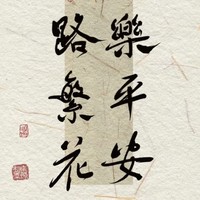 樂平安
路繁花